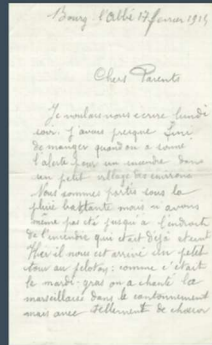 Bourg-l'Abbé 17 février 1915
Chers Parents
Je voulais vous écrire lundi
soir j'avais presque fini
de manger quand on a sonné
l'alerte pour un incendie dans
un petit village des environs
Nous sommes partis sous la
pluie battante mais n'avons
même pas été jusqu'à l'endroit
de l'incendie qui était déjà éteint
Hier il nous est arrivé un petit
tour au peloton; comme c'était
le mardi-gras on a chanté la
marseillaise dans le cantonnement
mais avec tellement de chœur